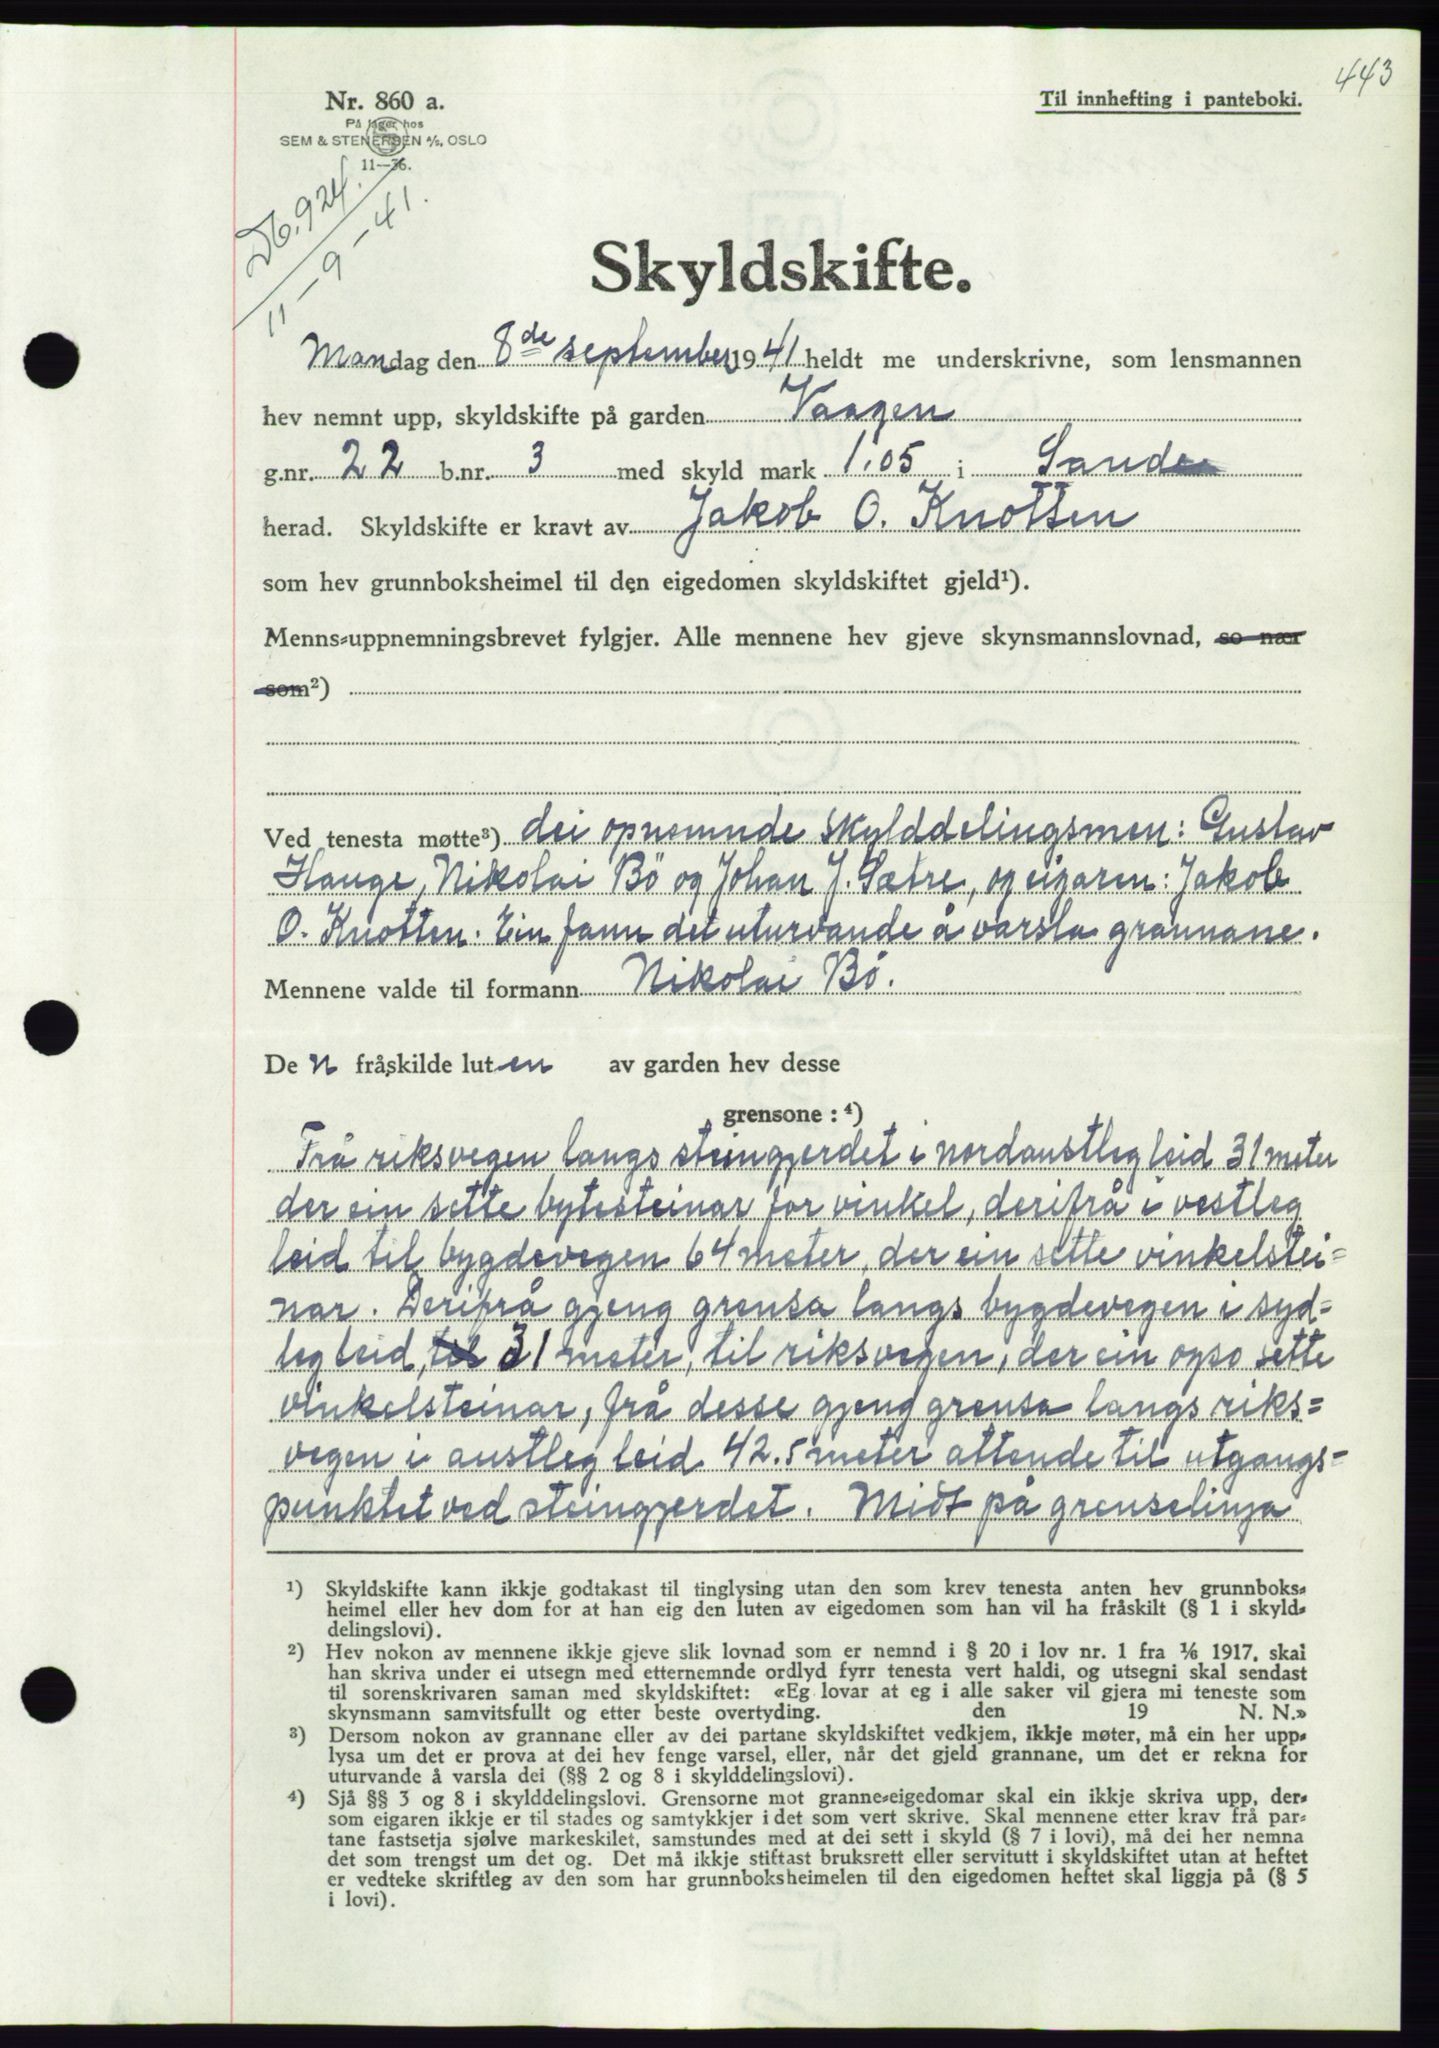 443
Nr. 860 a.
Til innhefting i panteboki.
På lager hos
SEM & STENERSEN A/S, OSLO
11—36.
Db. 924.
11-9-41.
Skyldskifte.
Mandag den 8de september 1941 heldt me underskrivne, som lensmannen
hev nemnt upp, skyldskifte på garden Vaagen
g.nr. 22 b.nr. 3 med skyld mark 1.05 i Sande
herad. Skyldskifte er kravt av Jakob O. Knotten
som hev grunnboksheimel til den eigedomen skyldskiftet gjeld¹).
Menns-uppnemningsbrevet fylgjer. Alle mennene hev gjeve skynsmannslovnad, so nær
som²)
Ved tenesta møtte³) dei opnemnde skylddelingsmen: Gustav
Hauge, Nikolai Bö og Johan J. Sætre, og eigaren: Jakob
O. Knotten. Ein fann det uturvande å varsla grannane.
Mennene valde til formann Nikolai Bö.
De n fråskilde luten av garden hev desse
grensone: ⁴)
Frå riksvegen langs steingjerdet i nordaustleg leid 31 meter
der ein sette bytesteinar for vinkel, derifrå i vestleg
leid til bygdevegen 64 meter, der ein sette vinkelstei=
nar. Derifrå gjeng grensa langs bygdevegen i syd=
leg leid, til 31 meter, til riksvegen, der ein ogso sette
vinkelsteinar, frå desse gjeng grensa langs riks=
vegen i austleg leid 42.5 meter attende til utgangs=
punktet ved steingjerdet. Midt på grenselinja
¹) Skyldskifte kann ikkje godtakast til tinglysing utan den som krev tenesta anten hev grunnboks-
heimel eller hev dom for at han eig den luten av eigedomen som han vil ha fråskilt (§ 1 i skyld-
delingslovi).
²) Hev nokon av mennene ikkje gjeve slik lovnad som er nemnd i § 20 i lov nr. 1 fra 1/6 1917, skal
han skriva under ei utsegn med etternemnde ordlyd fyrr tenesta vert haldi, og utsegni skal sendast
til sorenskrivaren saman med skyldskiftet: «Eg lovar at eg i alle saker vil gjera mi teneste som
skynsmann samvitsfullt og etter beste overtyding. den 19 N. N.»
³) Dersom nokon av grannane eller av dei partane skyldskiftet vedkjem, ikkje møter, må ein her upp-
lysa um det er prova at dei hev fenge varsel, eller, når det gjeld grannane, um det er rekna for
uturvande å varsla dei (§§ 2 og 8 i skylddelingslovi).
⁴) Sjå §§ 3 og 8 i skylddelingslovi. Grensorne mot granne-eigedomar skal ein ikkje skriva upp, der-
som eigaren ikkje er til stades og samtykkjer i det som vert skrive. Skal mennene etter krav frå par-
tane fastsetja sjølve markeskilet, samstundes med at dei sett i skyld (§ 7 i lovi), må dei her nemna
det som trengst um det og. Det må ikkje stiftast bruksrett eller servitutt i skyldskiftet utan at heftet
er vedteke skriftleg av den som har grunnboksheimelen til den eigedomen heftet skal liggja på (§ 5
i lovi).